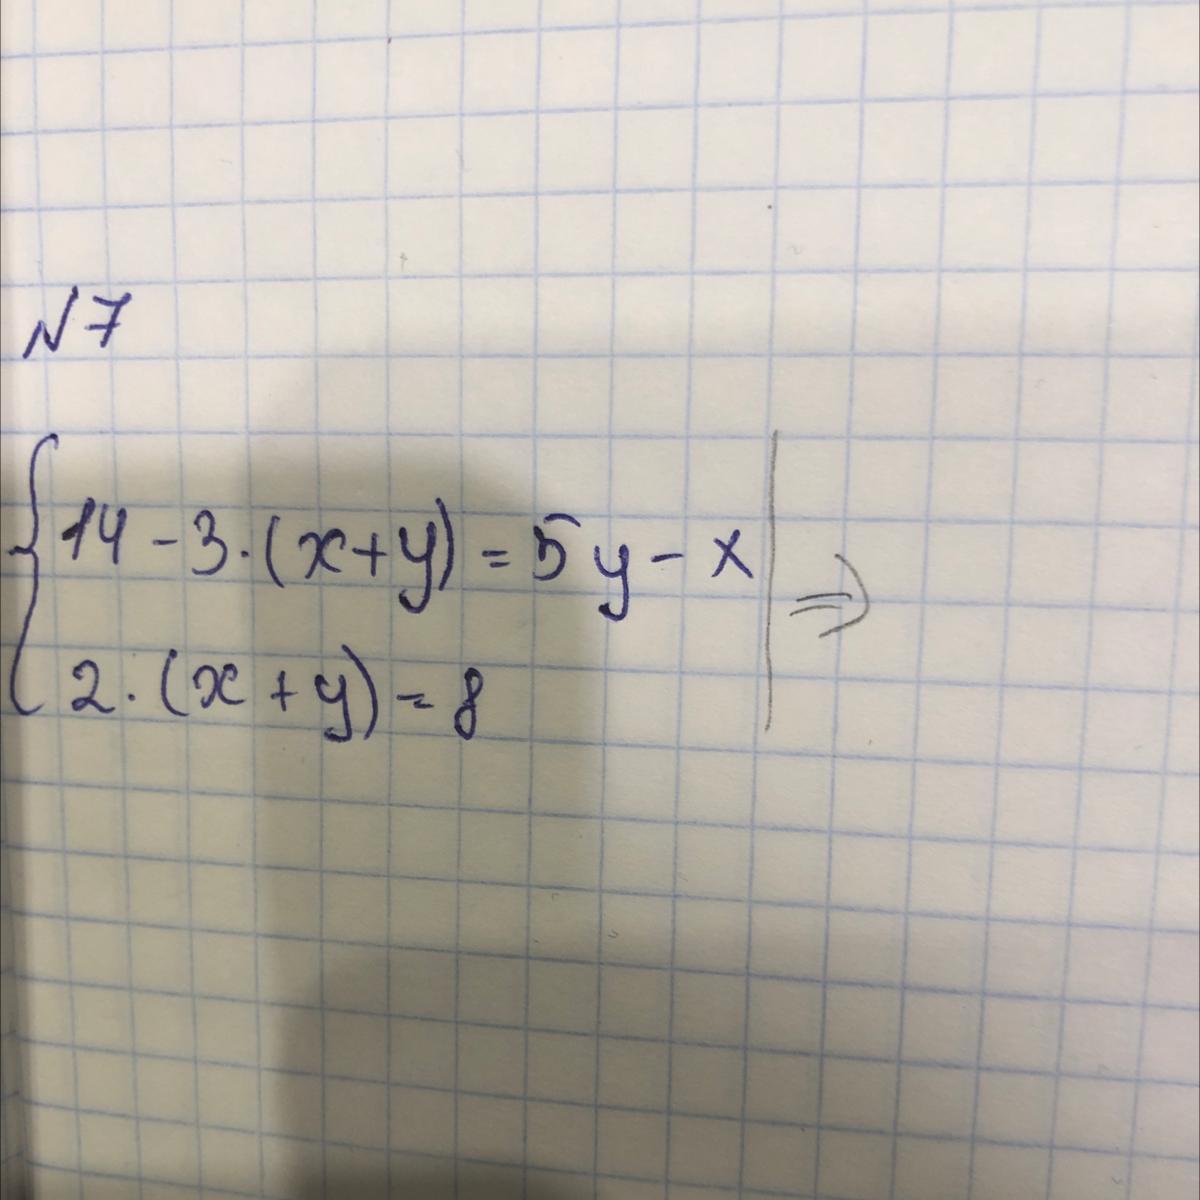 N7
14 - 3·(x+y) = 5y - x ⇒
2·(x+y) = 8